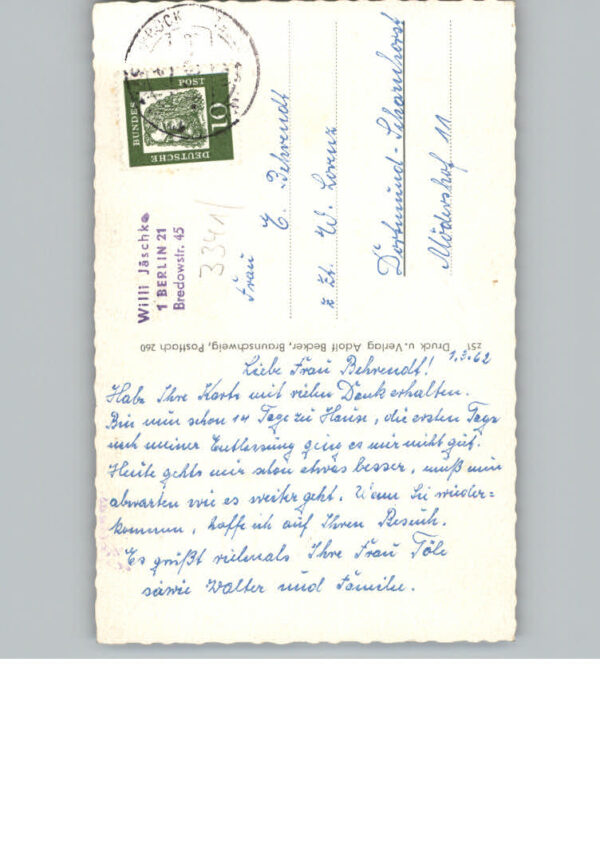 Liebe Frau Behrendt! 1.3.62
Habe Ihre Karte mit vielen Dank erhalten.
Bin nun schon 14 Tage zu Hause, die ersten Tage
nach meiner Entlassung ging es mir nicht gut.
Heute gehts mir schon etwas besser, muß nun
abwarten wie es weiter geht. Wenn Sie wieder=
kommen, hoffe ich auf Ihren Besuch.
Es grüßt vielmals Ihre Frau Töle
sowie Walter und Familie.
Z51 Druck u. Verlag Adolf Becker, Braunschweig, Postfach 260
Willi Jäschke
1 BERLIN 21
Bredowstr. 45
3341/
Frau
E. Behrendt
z Zt. W. Lorenz
Dortmund-Scharnhorst
Mödershof 11
DEUTSCHE
BUNDES
POST
10